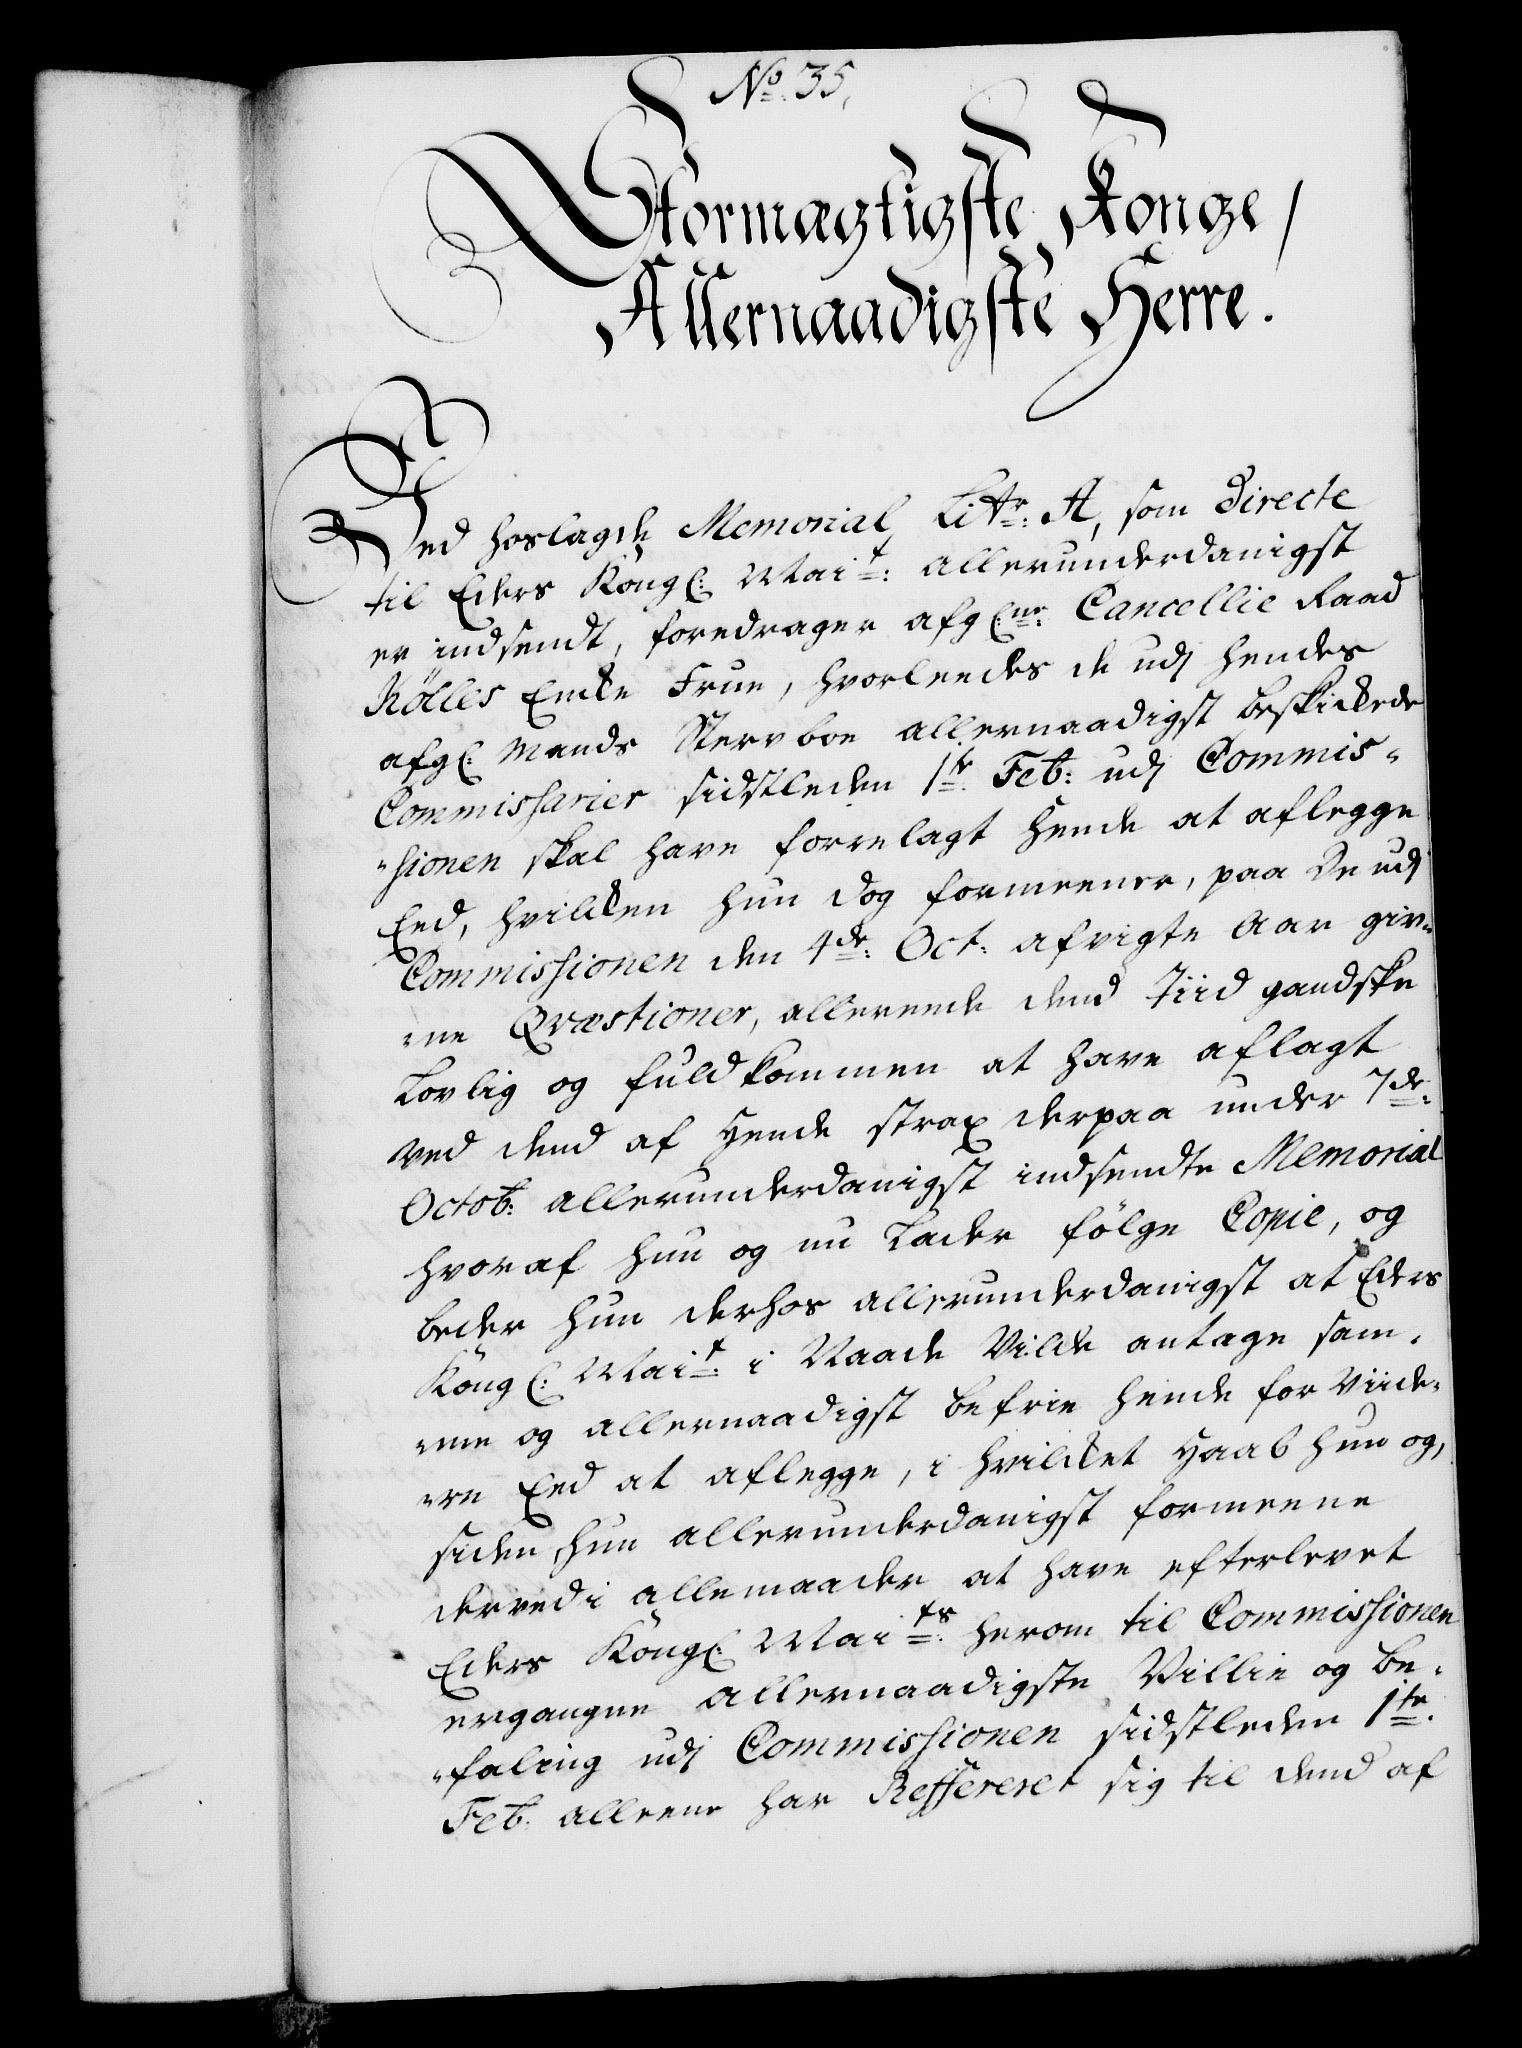 No. 35,
Stormægtigste Konge/
Allernaadigste Herre.
Ved hoslagde Memorial Littr: A, som Directe
til Eders Kongl: Mait: allerunderdanigst
er indsendt, foredrager afg: Cancellie Raad
Rölles Encke Frue, hvorleedes de udj hendes
afgl: Mands Sterv boe allernaadigst beskickede
Commissarier sidstleden 1te Feb: udj Commis-
-sionen skal have forrelagt Hende at aflegge
Eed, hvilcken hun dog formeener, paa De udj
Commissionen den 4de: Oct: afvigte Aar giv-
-ne Qvæstioner, allereede dend Tiid gandske
Lovlig og fuldkommen at have aflagt
ved dend af Hende strax derpaa under 7de:
Octob: allerunderdanigst indsendte Memorial
hvoraf hun og nu Lader fölge Copie, og
beder hun derhos allerunderdanigst at Eders
Kongl: Mait: i Naade Vilde antage sam-
-me og allernaadigst befrie hende for Viide-
-re Eed at aflegge, i hvilcket Haab hun og,
siden hun allerunderdanigst formeene
derved i allemaader at have efterlevet
Eders Kongl: Maits: herom til Commissionen
ergangne allernaadigste Villie og be-
-faling udj Commissionen sidstleden 1te.
Feb: alleene har Reffereret sig til dend af